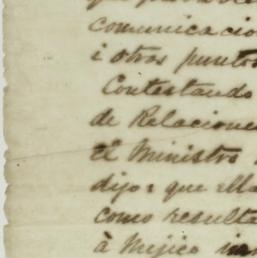 que
comunicacio
i otros punto
Contestando
de Relacione
el Ministro
dijo: que ella
como resulta
à Mejico